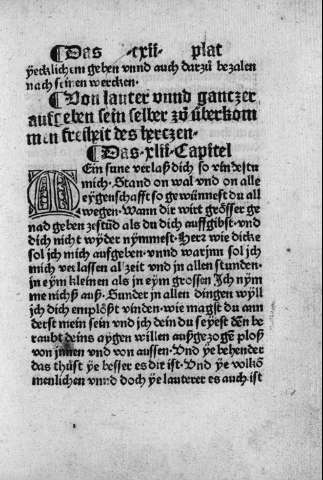 ¶Das ·cxii· plat
yecklichem geben vnnd auch darzů bezalen
nach seinen wercken·
¶Von lauter vnnd gantzer
auffgeben sein selber zů überkom
men freiheit des hertzen·
¶Das·xlii·Capitel
MEin sune verlaß dich so vindestu
mich·Stand on wal vnd on alle
eygenschafft so gewünnest du all
wegen·Wann dir wirt grösser ge
nad geben zestůd als du dich auffgibst·vnd
dich nicht wyder nymmest·Herr wie dicke
sol jch mich auffgeben·vnnd warjnn sol jch
mich verlassen alzeit vnd in allen stunden·
in eym kleinen als in eym grossen Jch nym
me nichß auß·Sunder in allen dingen wyll
jch dich emplößt vinden·wie magst du ann
derst mein sein vnd jch dein du seyest dēn be
raubt deins aygen willen außgezogē ploß
von jnnen vnd von aussen·Vnd ye behender
das thůst ye besser es dir ist·Vnd ye volkō
menlichen vnnd doch ye lauterer es auch ist